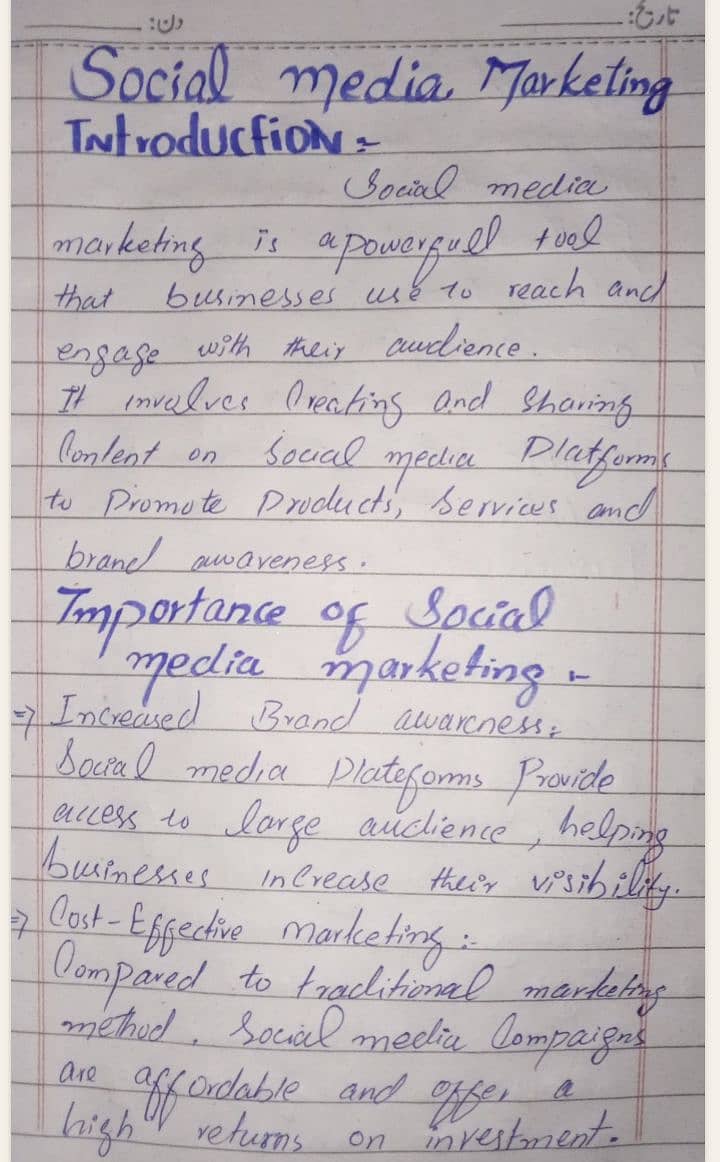 تاریخ: ________ دن: ________
Social media Marketing
Introduction :-
Social media
marketing is a powerfull tool
that businesses use to reach and
engage with their audience.
It involves Creating and Sharing
Content on Social media Platforms
to Promote Products, Services and
brand awareness.
Importance of Social
media marketing :-
⇒ Increased Brand awareness:
Social media Plateforms Provide
access to large audience, helping
businesses inCrease their visibility.
⇒ Cost-Effective marketing :-
Compared to traditional marketing
method. Social media Compaigns
are affordable and offer a
high returns on investment.